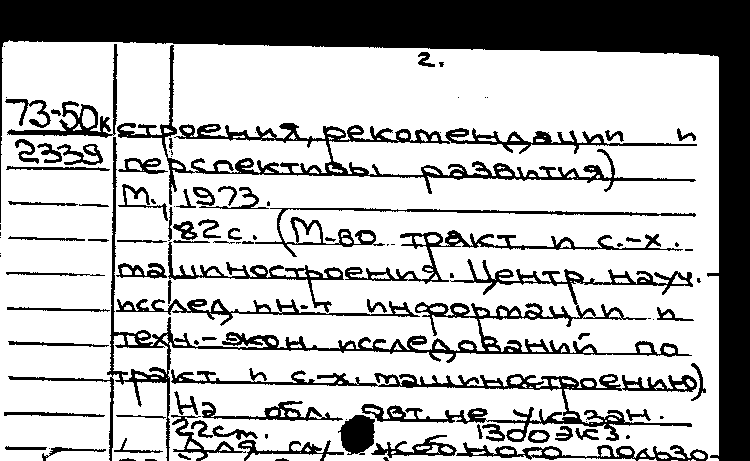 2.
73-50к строения, рекомендации и
2339 перспективы развития)
М., 1973.
82 с. (М-во тракт. и с.-х.
машиностроения. Центр. науч.-
исслед. ин-т информации и
техн.-экон. исследований по
тракт. и с.-х. машиностроению).
На обл. авт. не указан.
22 см. 1300 экз.
Для служебного пользо-